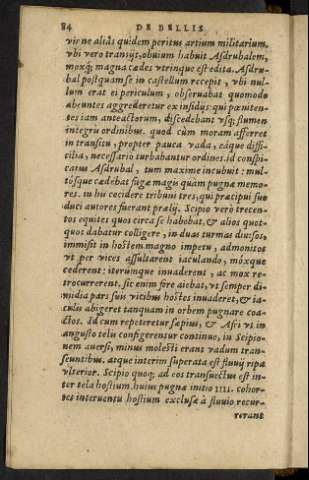 84 DE BELLIS
vir ne aliâs quidem peritus artium militarium,
vbi vero transijt, obuium habuit Asdrubalem,
moxq; magna cædes vtrinque est edita. Asdru-
bal postquam se in castellum recepit, vbi nul-
lum erat ei periculum, obseruabat quomodo
abeuntes aggrederetur ex insidijs: qui pœniten-
tes iam anteactorum, discedebant vsq; flumen
integris ordinibus. quod cùm moram afferret
in transitu, propter pauca vada, eáque diffi-
cilia, necessariò turbabantur ordines. id conspi-
catus Asdrubal, tum maxime incubuit: mul-
tósque cædebat fugæ magis quàm pugnæ memo-
res. in his cecidere tribuni tres, qui præcipui suo
duci autores fuerant prælij. Scipio verò trecen-
tos equites quos circa se habebat, & alios quot-
quos dabatur colligere, in duas turmas diuisos,
immisit in hostem magno impetu, admonitos
vt per vices assultarent iaculando, móxque
cederent: iterúmque inuaderent, ac mox re-
trocurrerent. sic enim fore aiebat, vt semper di-
midia pars suis vicibus hostes inuaderet, & ia-
culis abigeret tanquam in orbem pugnare coa-
ctos. Id cum repeteretur sæpius, & Afri vt in
angusto telis configerentur continuo, in Scipio-
nem auersi, minus molesti erant vadum tran-
seuntibus. atque interim superata est fluuij ripa
vlterior. Scipio quoq; ad eos transuectus est in-
ter tela hostium. huius pugnæ initio IIII. cohor-
tes interuentu hostium exclusæ à fluuio recur-
rerant